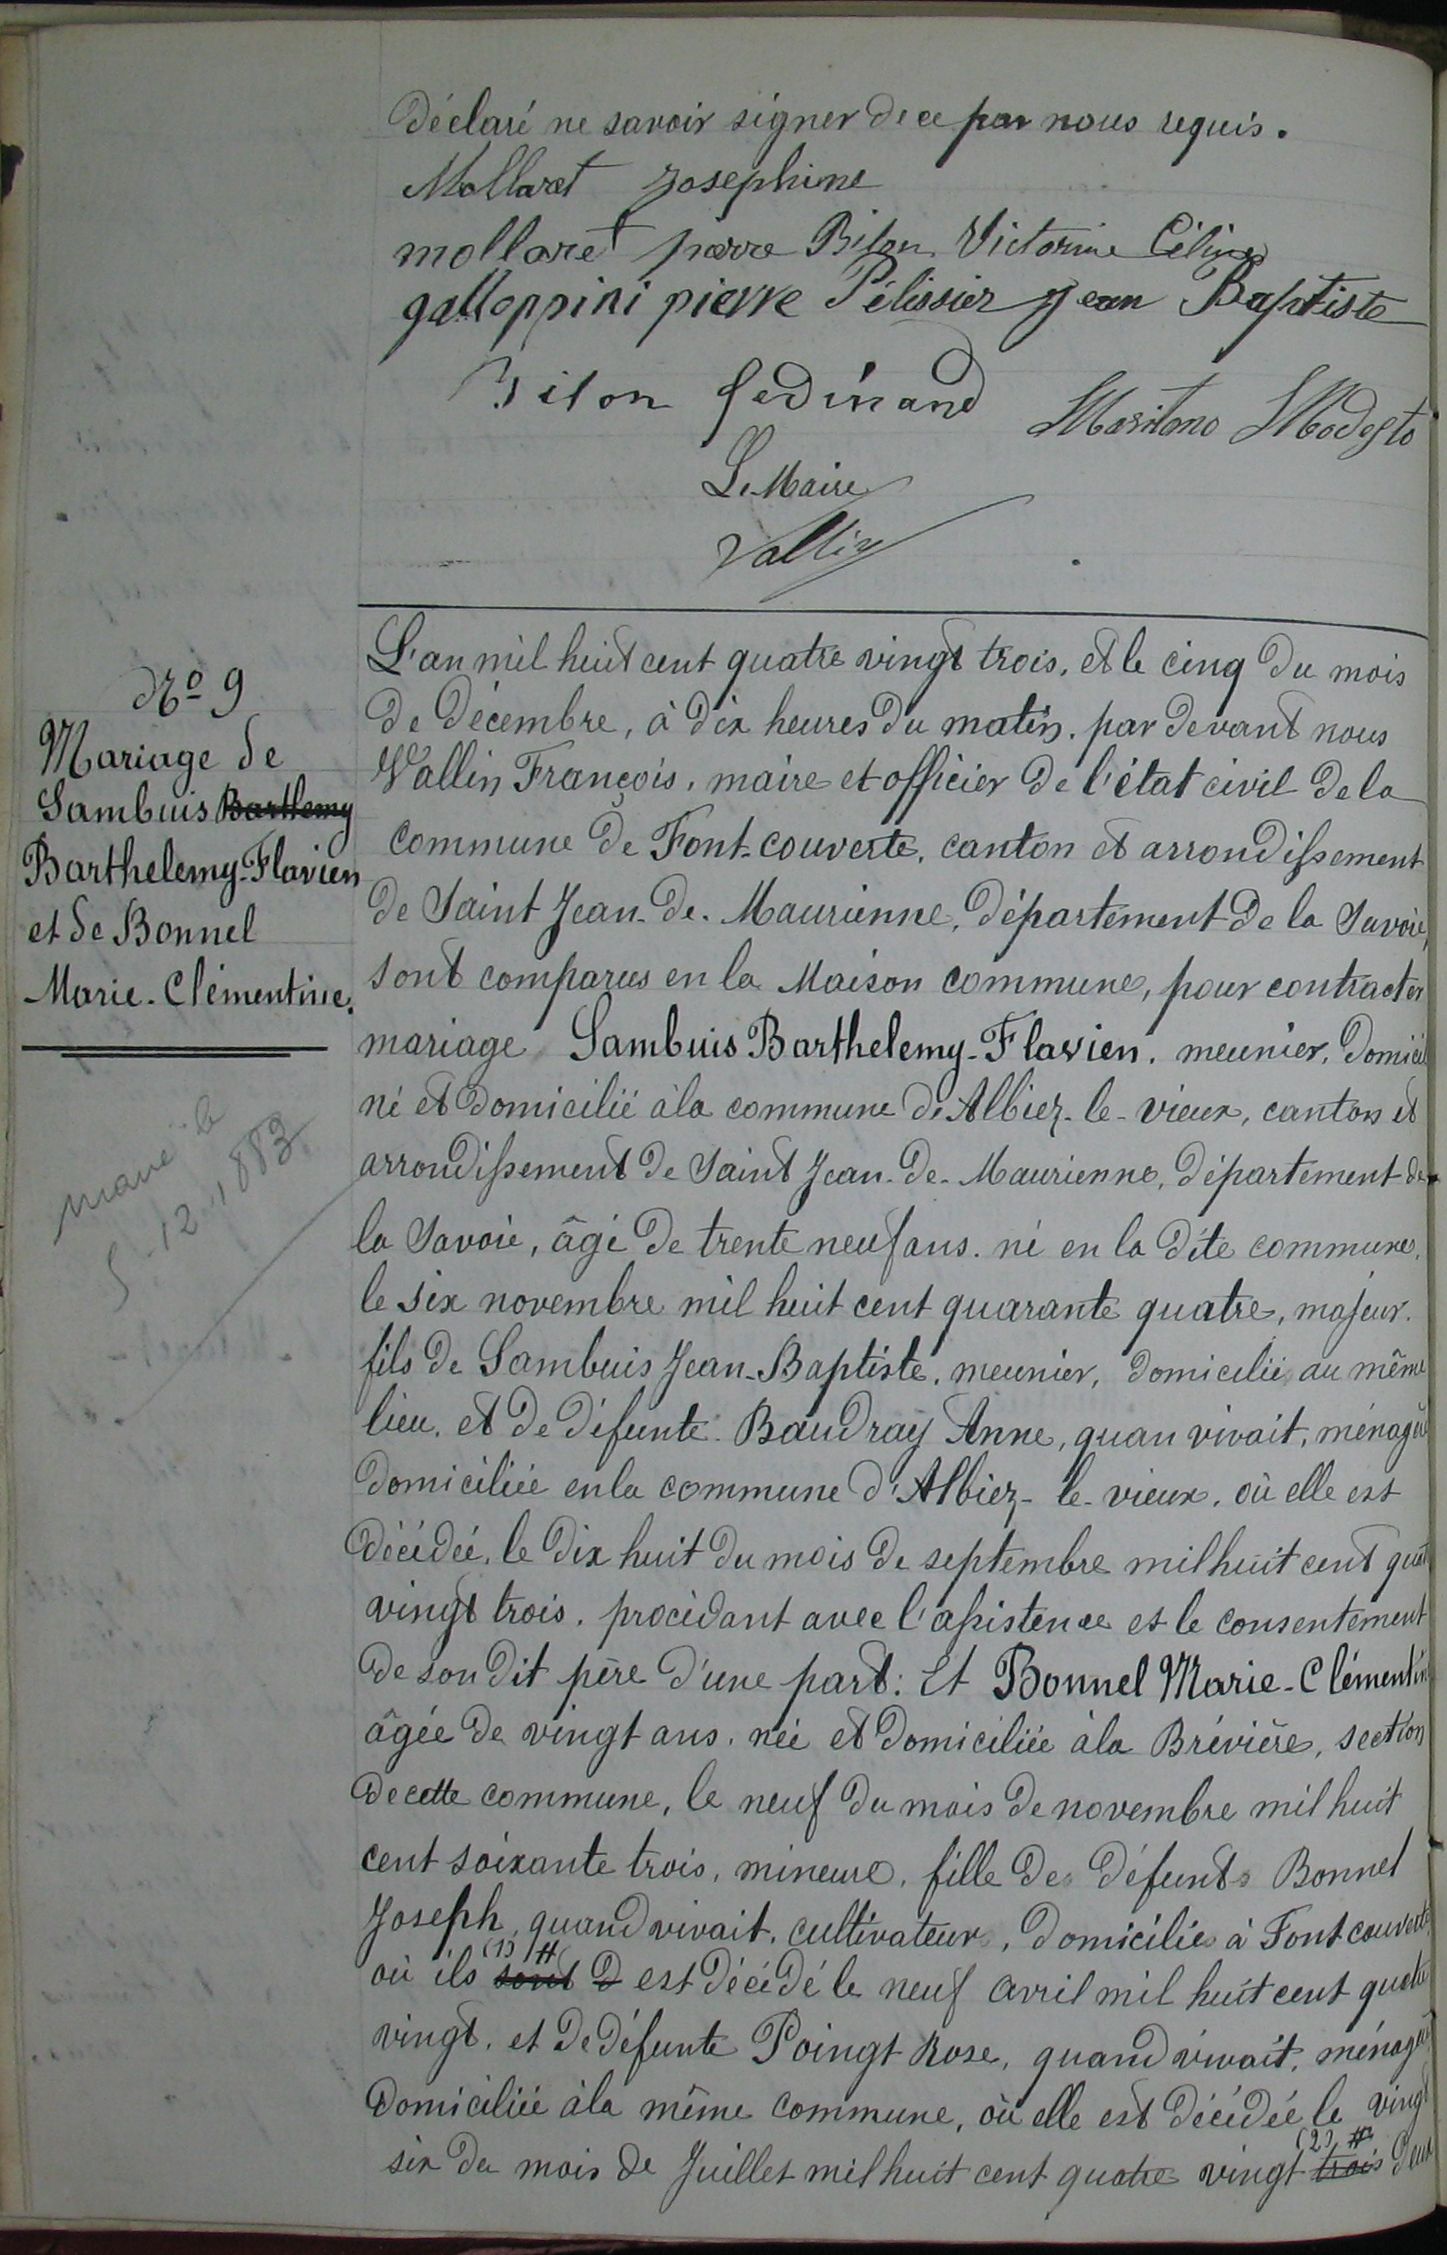 Déclaré ne savoir signer de ce par nous requis.
Mollaret Josephine
mollaret pierre Bilon Victorine Céline
galloppini pierre Pélissier Jean Baptiste
Bilon ferdinand Modesto
Le Maire
Vallin
Nº 9
Mariage de
Sambuis Barthemy
Barthelemy-Flavien
et de Bonnel
Marie-Clémentine.
marié le
5-12-1883
L'an mil huit cent quatre vingt trois, et le cinq du mois
de Décembre, à dix heures du matin, par devant nous
Vallin François, maire et officier de l'état civil de la
commune de Font-couverte, canton et arrondissement
de Saint Jean-de-Maurienne, département de la Savoie,
sont comparus en la Maison commune, pour contracter
mariage Sambuis Barthelemy-Flavien, meunier, domicil
né et domicilié à la commune d'Albiez-le-vieux, canton et
arrondissement de Saint Jean-de-Maurienne, département de
la Savoie, âgé de trente neuf ans, né en la dite commune,
le six novembre mil huit cent quarante quatre, majeur,
fils de Sambuis Jean-Baptiste, meunier, domicilié au même
lieu, et de défunte Baudray Anne, quan vivait, ménagère
domiciliée en la commune d'Albiez-le-vieux, où elle est
décédée, le dix huit du mois de septembre mil huit cent quat
vingt trois, procédant avec l'assistence et le consentement
de son dit père d'une part: Et Bonnel Marie-Clémentine
âgée de vingt ans, née et domiciliée à la Brévière, section
de cette commune, le neuf du mois de novembre mil huit
cent soixante trois, mineure, fille des défunts Bonnel
Joseph, quand vivait, cultivateur, domicilié à Font couverte,
où ils (1) # sont D est décédé le neuf avril mil huit cent quatre
vingt, et de défunte Poingt Rose, quand vivait, ménagère
domiciliée à la même commune, où elle est décédée le vingt
six du mois de Juillet mil huit cent quatre vingt (2) # trois deux